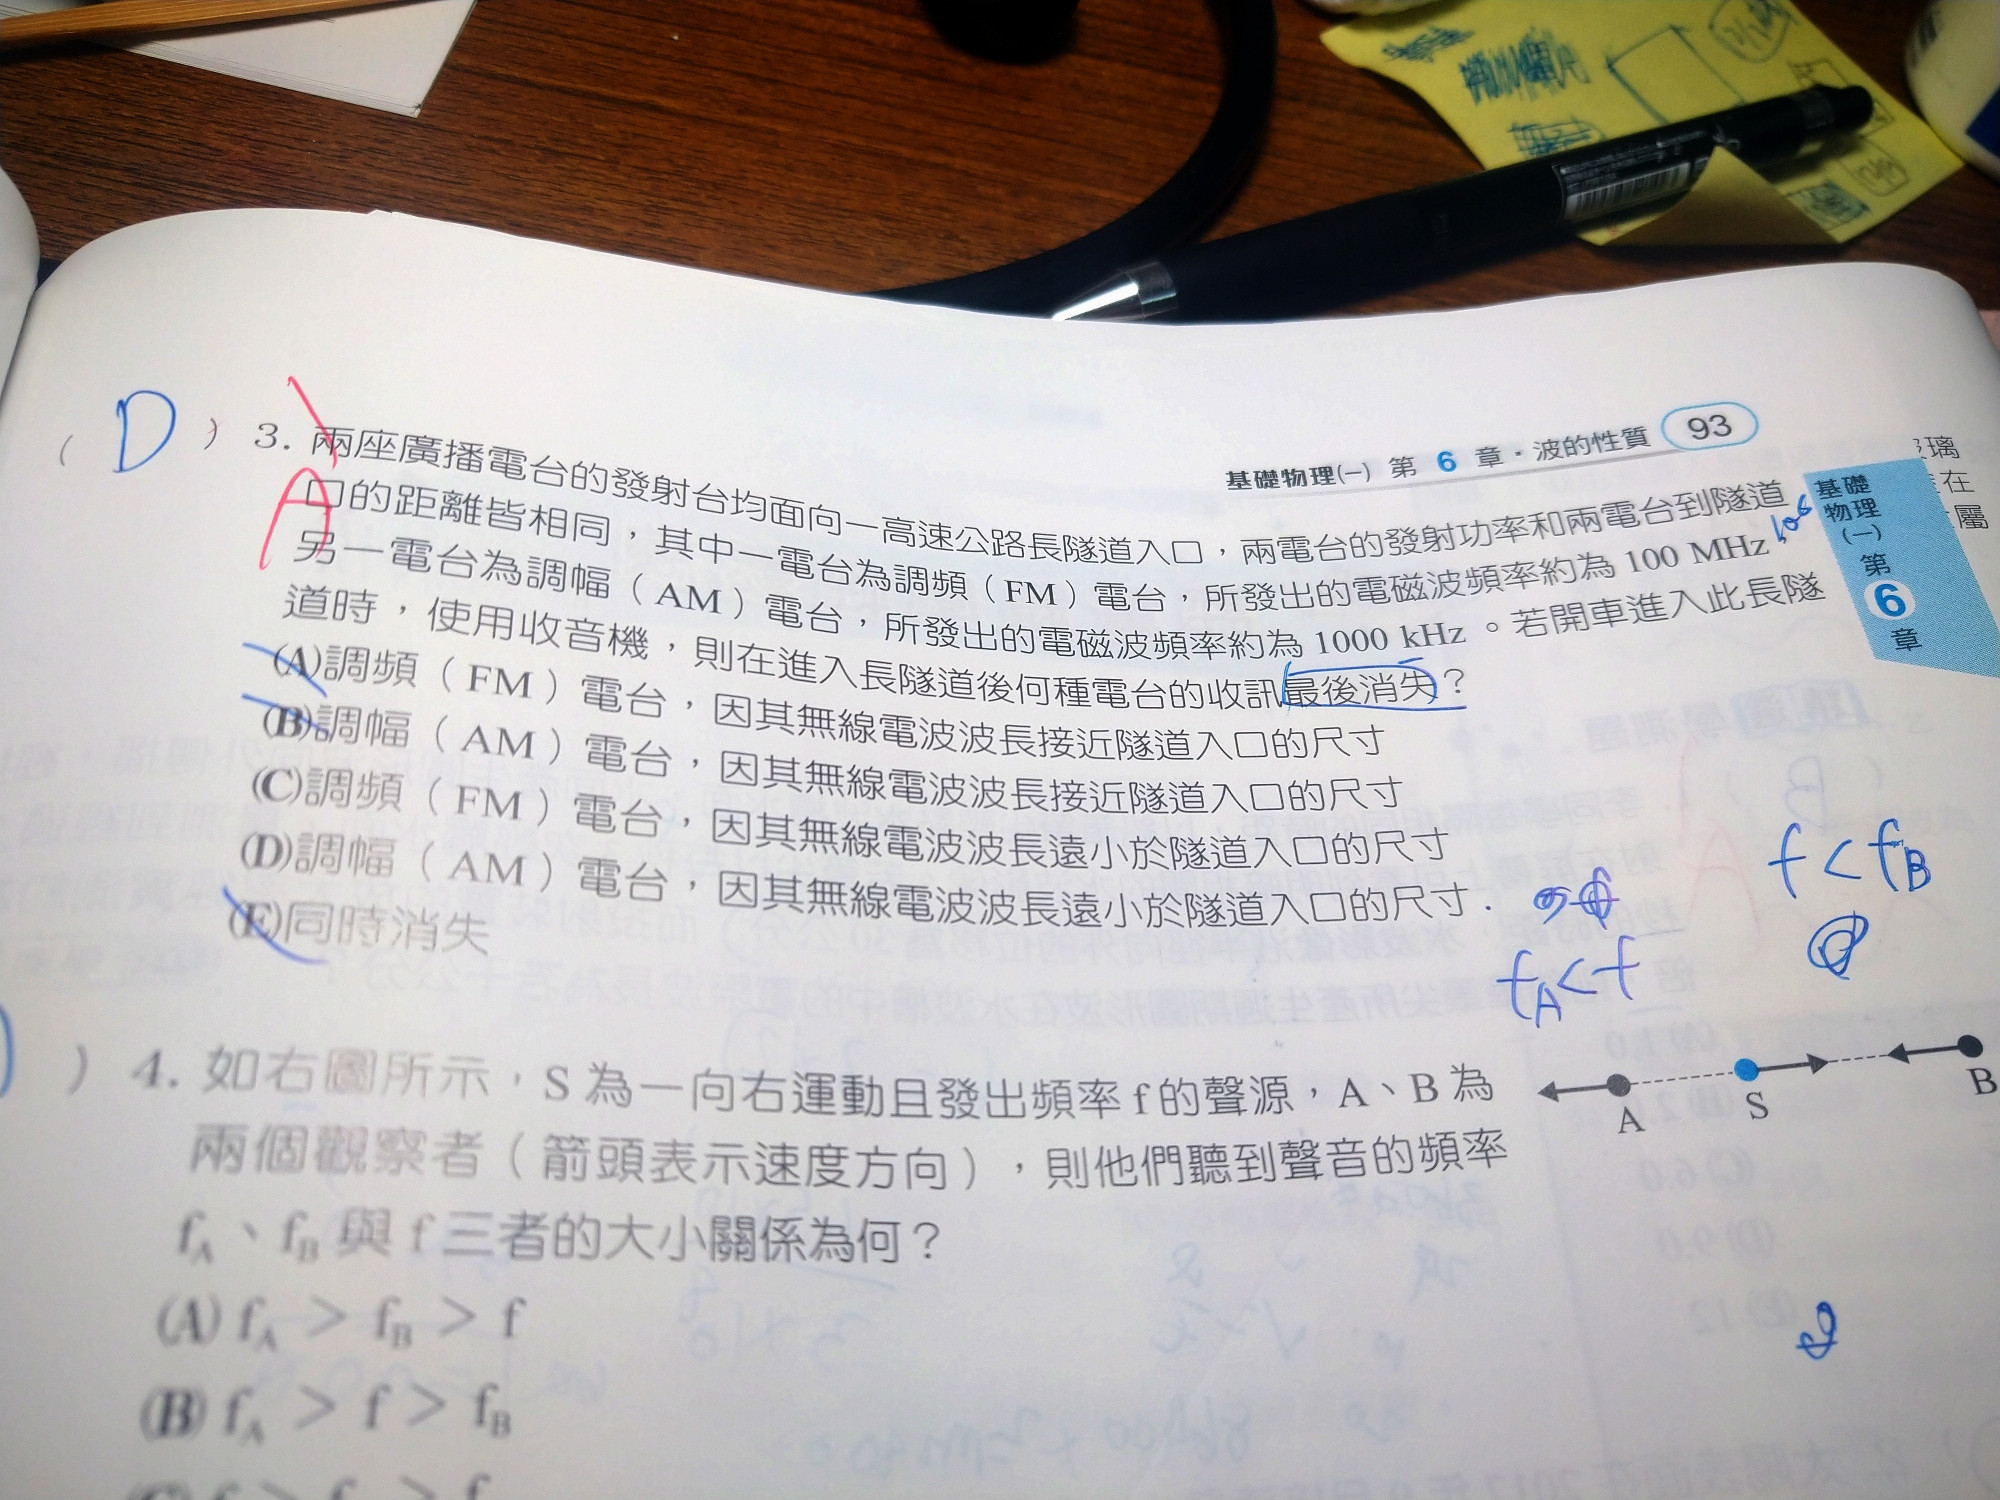 基礎物理(一) 第 6 章・波的性質 93
基礎
物理
(一)
第
6
章
玻璃
在
屬
( D ) 3. 兩座廣播電台的發射台均面向一高速公路長隧道入口，兩電台的發射功率和兩電台到隧道
A
口的距離皆相同，其中一電台為調頻（FM）電台，所發出的電磁波頻率約為 100 MHz，
另一電台為調幅（AM）電台，所發出的電磁波頻率約為 1000 kHz。若開車進入此長隧
道時，使用收音機，則在進入長隧道後何種電台的收訊最後消失？
(A)調頻（FM）電台，因其無線電波波長接近隧道入口的尺寸
(B)調幅（AM）電台，因其無線電波波長接近隧道入口的尺寸
(C)調頻（FM）電台，因其無線電波波長遠小於隧道入口的尺寸
(D)調幅（AM）電台，因其無線電波波長遠小於隧道入口的尺寸．
(E)同時消失
f < fB
fA < f
) 4. 如右圖所示，S 為一向右運動且發出頻率 f 的聲源，A、B 為
兩個觀察者（箭頭表示速度方向），則他們聽到聲音的頻率
fA、fB 與 f 三者的大小關係為何？
A S B
(A) fA > fB > f
(B) fA > f > fB